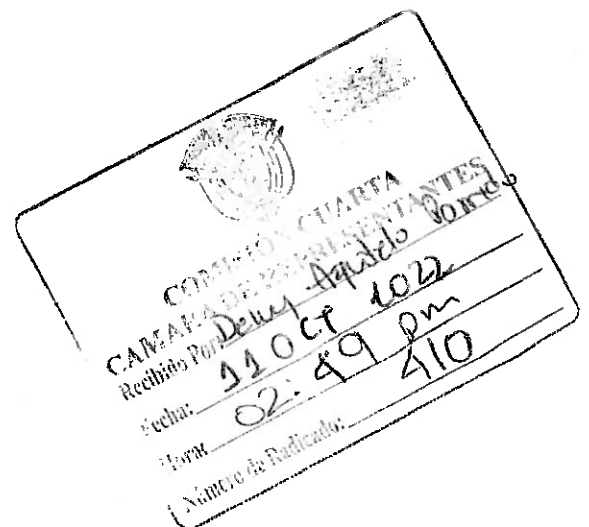 COMISIÓN CUARTA
CAMARA DE REPRESENTANTES
Recibido Por: Deisy Agudelo
Fecha: 11 OCT 2022
Hora: 02:49 pm
Número de Radicado: 410